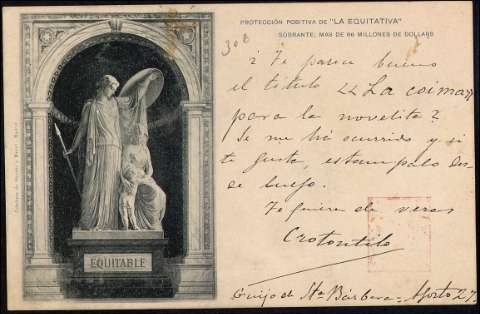 PROTECCIÓN POSITIVA DE "LA EQUITATIVA"
SOBRANTE: MAS DE 66 MILLONES DE DOLLARS
308
¿Te parece bueno
el titulo "La coima"
para la novelita?
Se me há ocurrido y si
te gusta, estampalo des-
de luego.
Te quiere de veras
EQUITABLE
Guijo de Sta Bárbara = Agosto 27